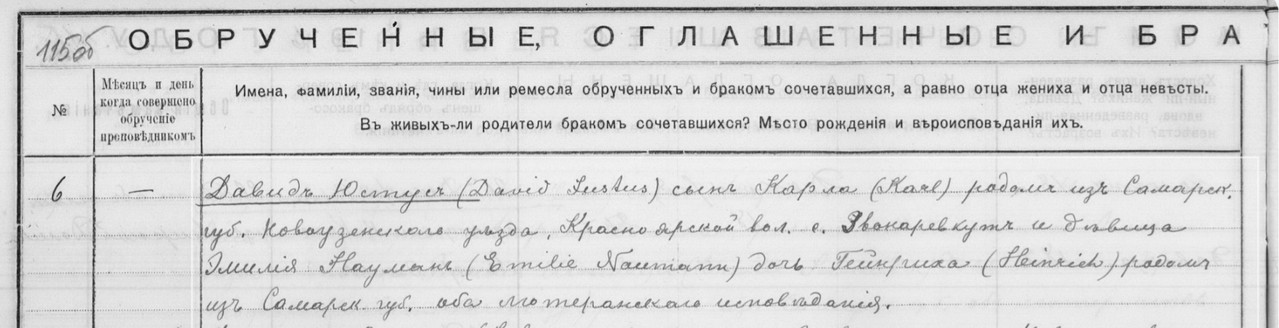 115об
ОБРУЧЕННЫЕ, ОГЛАШЕННЫЕ И БРА
№
Мѣсяцъ и день
когда совершено
обрученіе
проповѣдникомъ
Имена, фамиліи, званія, чины или ремесла обрученныхъ и бракомъ сочетавшихся, а равно отца жениха и отца невѣсты.
Въ живыхъ-ли родители бракомъ сочетавшихся? Мѣсто рожденія и вѣроисповѣданія ихъ.
6
—
Давидъ Юстусъ (David Justus) сынъ Карла (Karl) родомъ изъ Самарск.
губ. Новоузенскаго уѣзда, Красноярской вол. с. Звонаревкутъ и дѣвица
Эмилія Науманъ (Emilie Naumann) дочь Гейнриха (Heinrich) родомъ
изъ Самарск. губ. оба лютеранскаго исповѣданія.